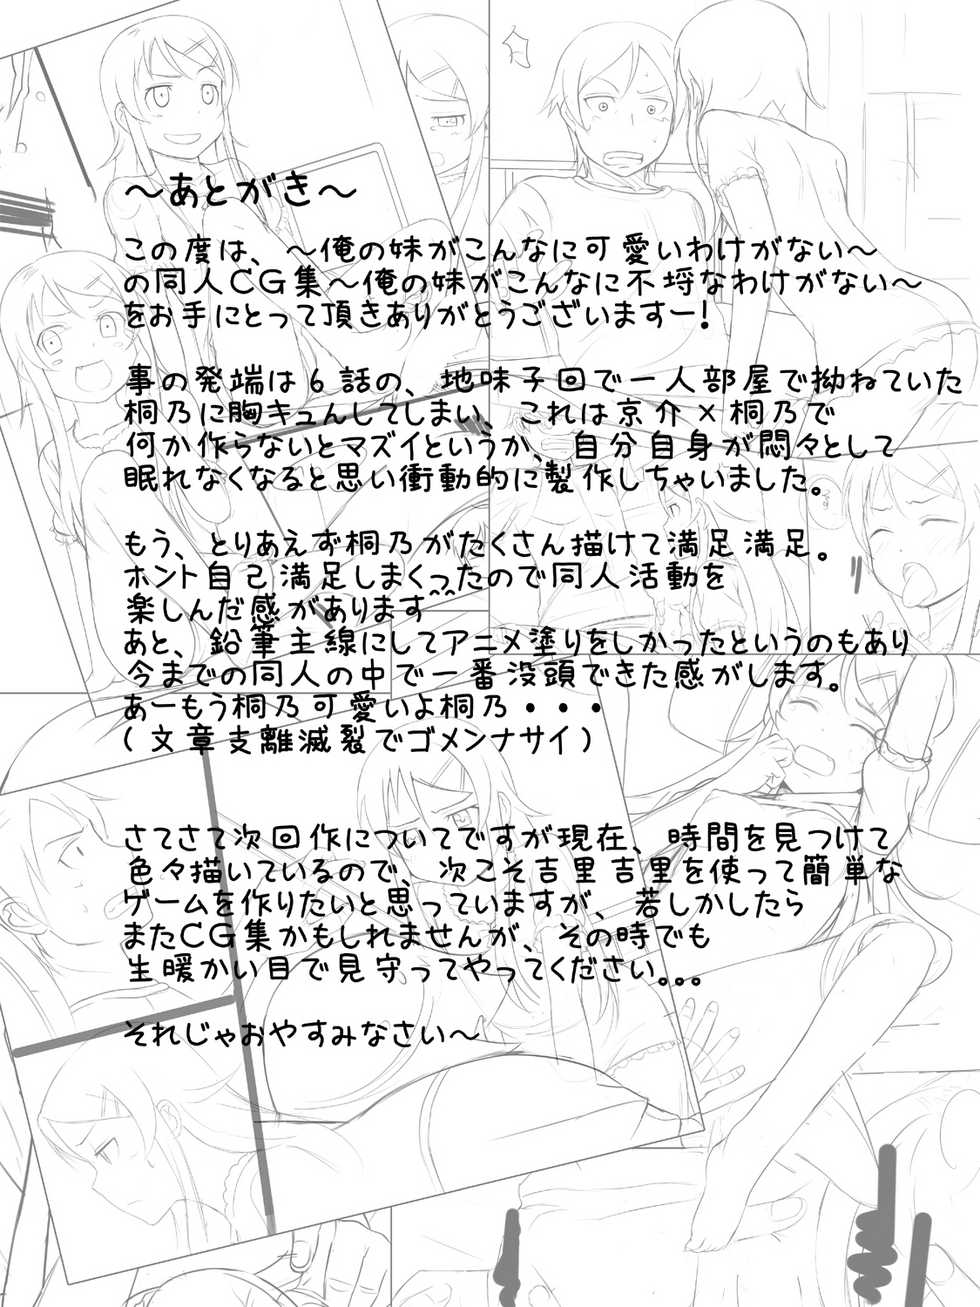 ～あとがき～
この度は、～俺の妹がこんなに可愛いわけがない～
の同人CG集～俺の妹がこんなに不埒なわけがない～
をお手にとって頂きありがとうございますー！
事の発端は６話の、地味子回で一人部屋で拗ねていた
桐乃に胸キュんしてしまい、これは京介×桐乃で
何か作らないとマズイというか、自分自身が悶々として
眠れなくなると思い衝動的に製作しちゃいました。
もう、とりあえず桐乃がたくさん描けて満足満足。
ホント自己満足しまくったので同人活動を
楽しんだ感があります^^
あと、鉛筆主線にしてアニメ塗りをしかったというのもあり
今までの同人の中で一番没頭できた感がします。
あーもう桐乃可愛いよ桐乃・・・
(文章支離滅裂でゴメンナサイ)
さてさて次回作についてですが現在、時間を見つけて
色々描いているので、次こそ吉里吉里を使って簡単な
ゲームを作りたいと思っていますが、若しかしたら
またCG集かもしれませんが、その時でも
生暖かい目で見守ってやってください。。。
それじゃおやすみなさい～